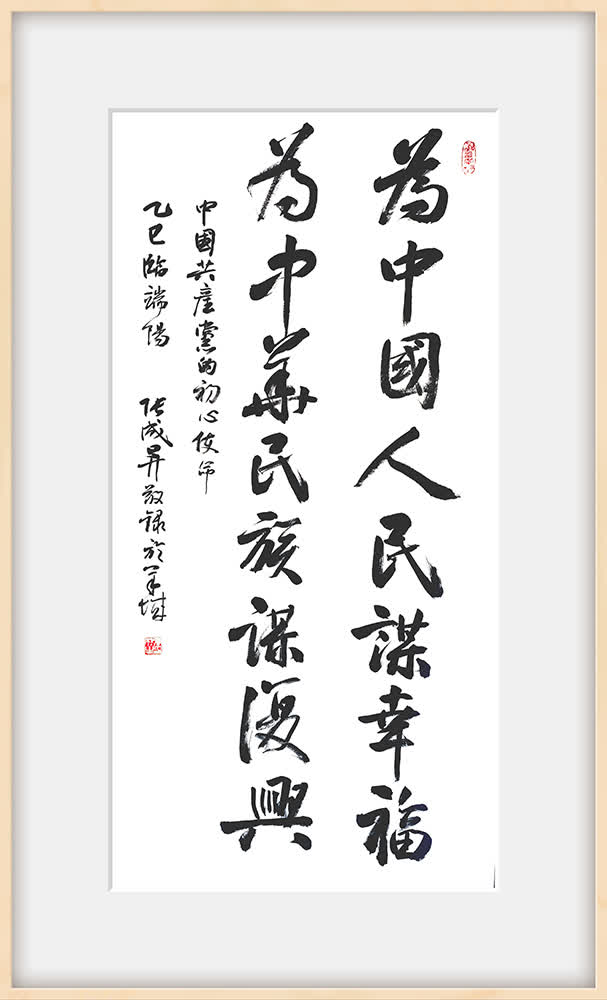 為中國人民謀幸福
為中華民族谋復興
中國共產黨的初心使命
乙巳臨端陽 张成昇敬録於羊城